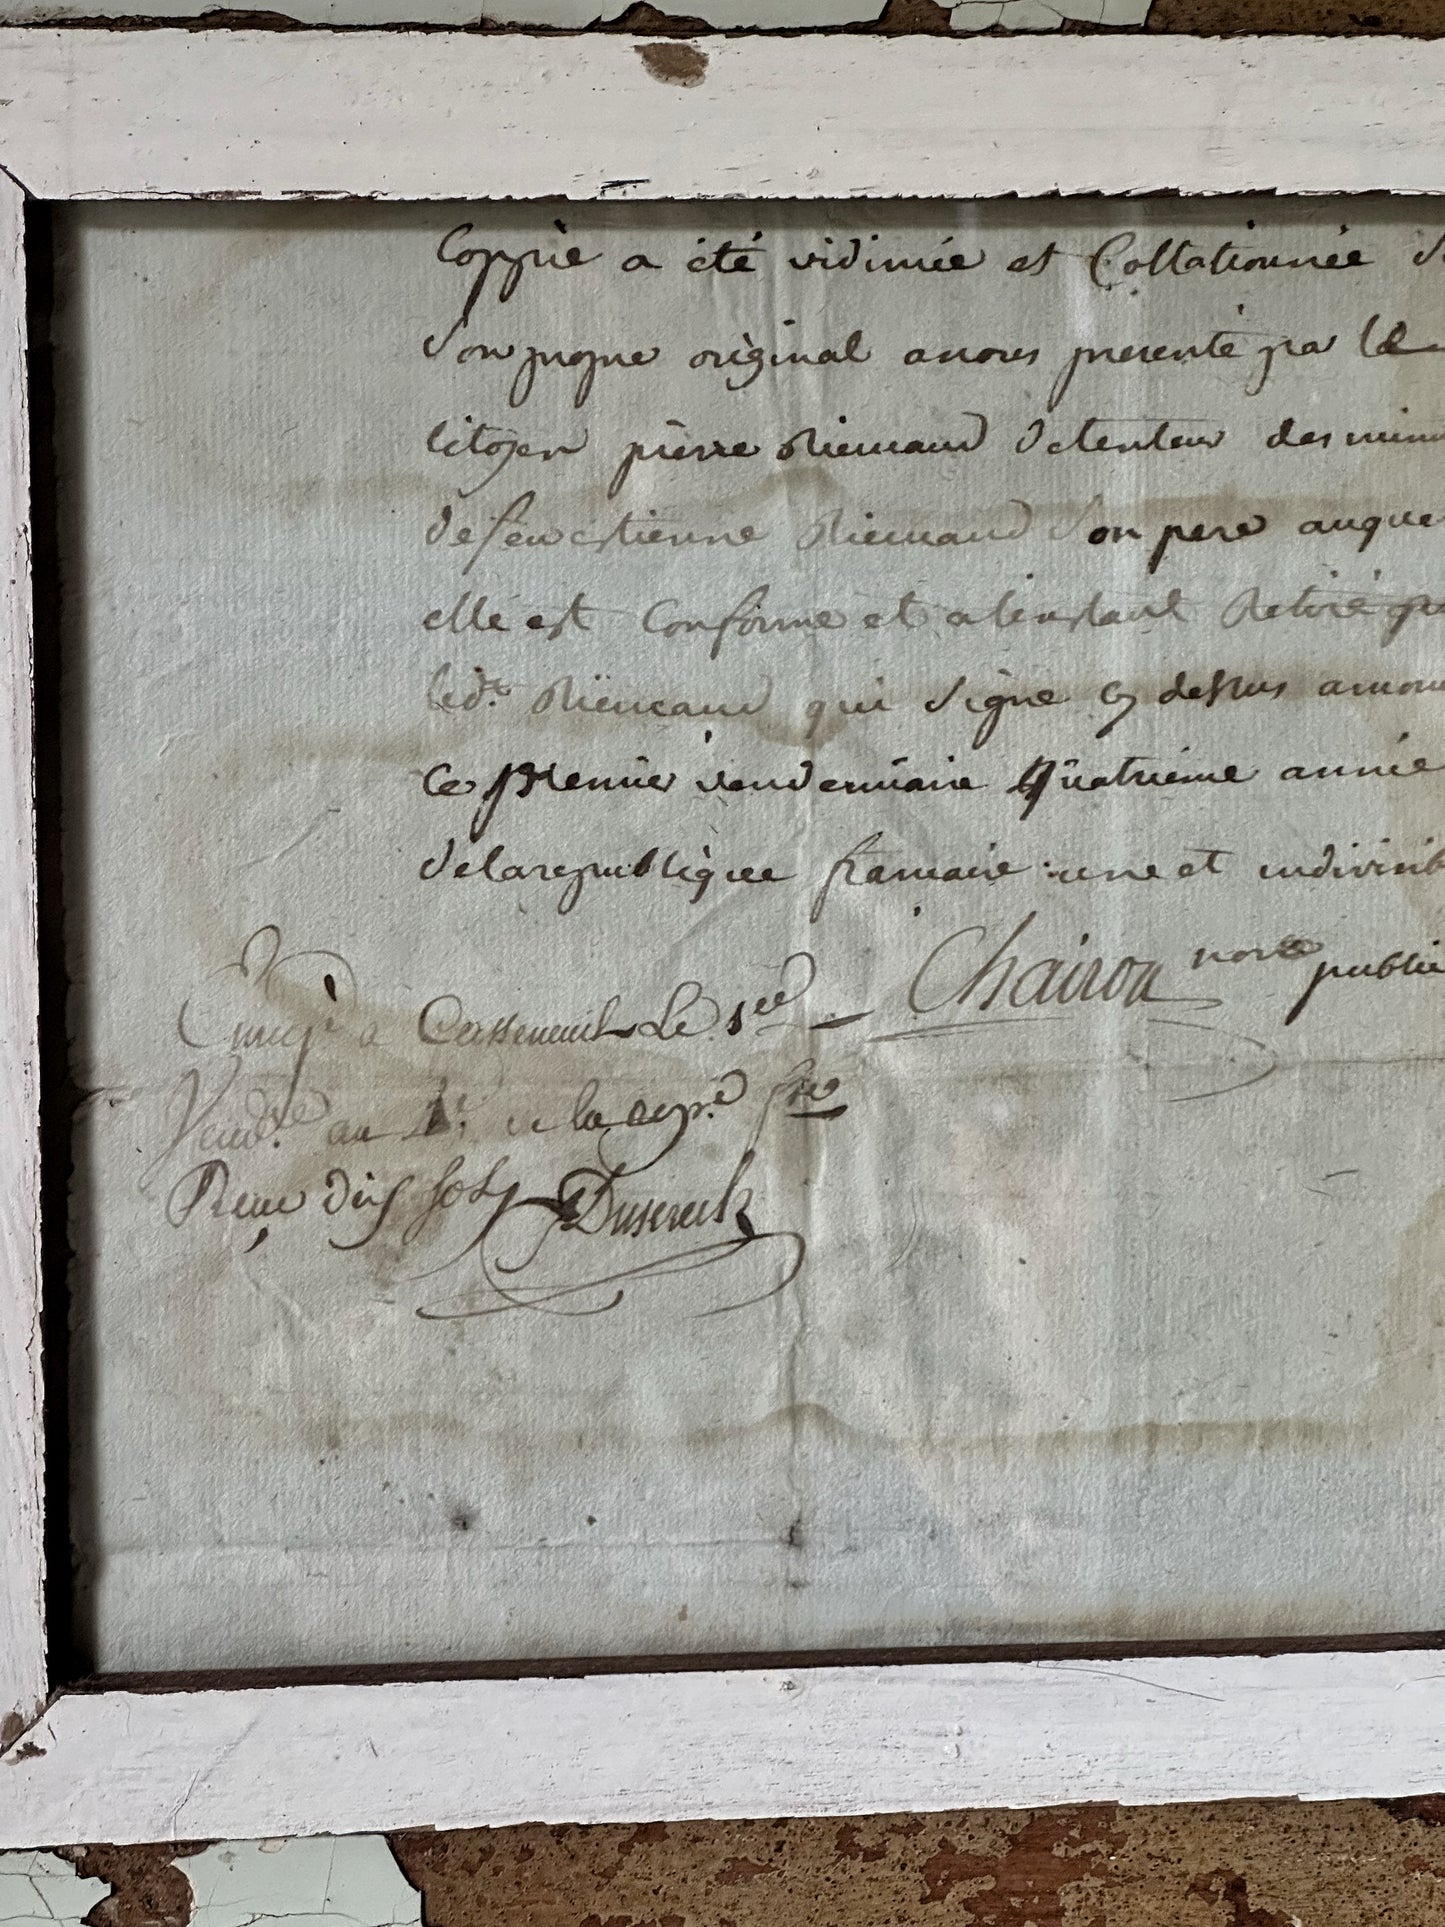 Coppie a été vidimée et Collationnée
Son propre original anous presenté par le
Citoyen pierre Rieucaud detenteur des
de feu estienne Rieucaud Son pere auquel
elle est Conforme et a linstant Retiré
led.t Rieucaud qui Signe cy dessus
Ce premier vendemiaire Quatrieme année
de la republique francaise une et indivisib
Chairou nore public
Enregé a Cassneuil Le 1er
Vendre an 4e de la repe fse
Reçu dix sols